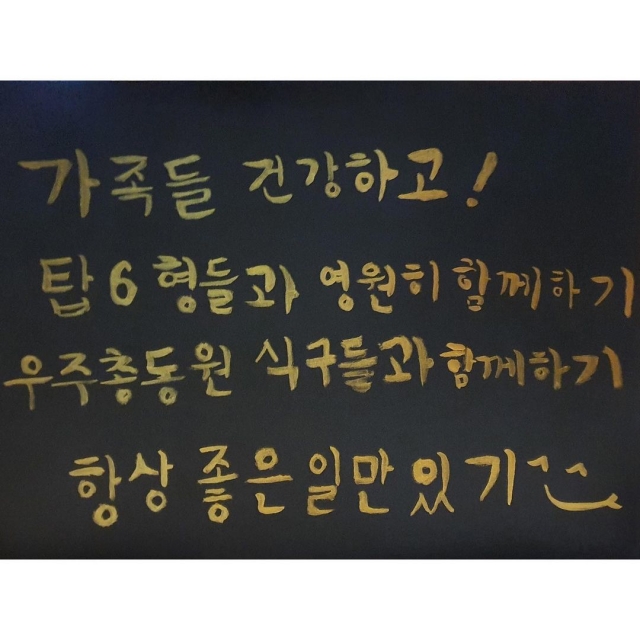 가족들 건강하고!
탑6 형들과 영원히 함께하기
우주총동원 식구들과 함께하기
항상 좋은일만 있기^^